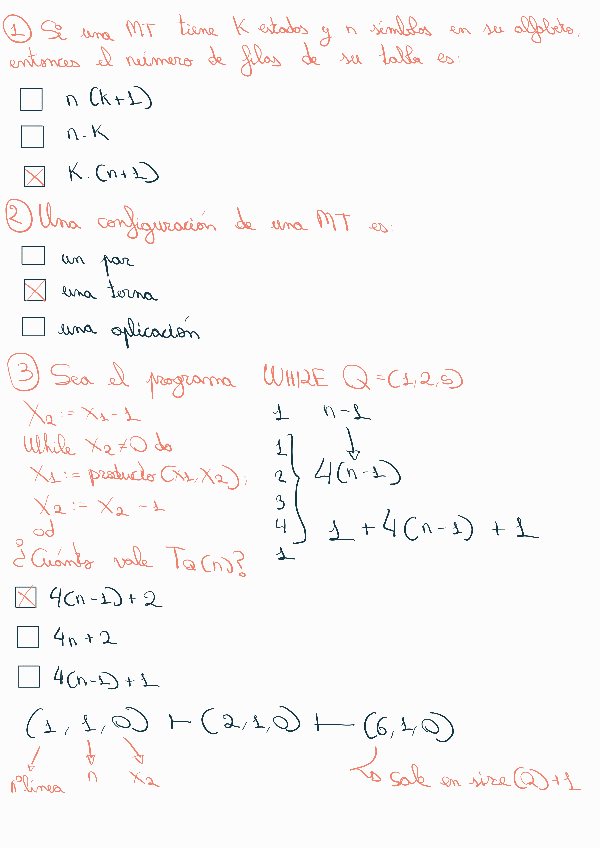 ① Si una MT tiene K estados y n símbolos en su alfabeto,
entonces el número de filas de su tabla es:
n (k+1)
n·K
K·(n+1)
② Una configuración de una MT es:
un par
una terna
una aplicación
③ Sea el programa WHILE Q=(1,2,s)
X2 := X1-1 1 n-1
While X2≠0 do 1
X1 := producto (X1,X2); 2 4(n-1)
X2 := X2 -1 3
od 4 1 +4(n-1) +1
¿Cuánto vale TQ(n)? 1
4(n-1)+2
4n+2
4(n-1)+1
(1, 1, 0) ⊢ (2,1,0) ⊢ (6,1,0)
nº línea n X2 sale en size(Q)+1